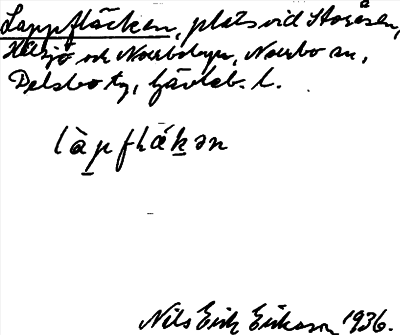 Lappfläcken, plats vid Storåsen,
Hålsjö och Norrbobyn, Norrbo sn,
Delsbo tg, Gävleb. l.
làpflä́kən
Nils Erik Eriksson 1936.